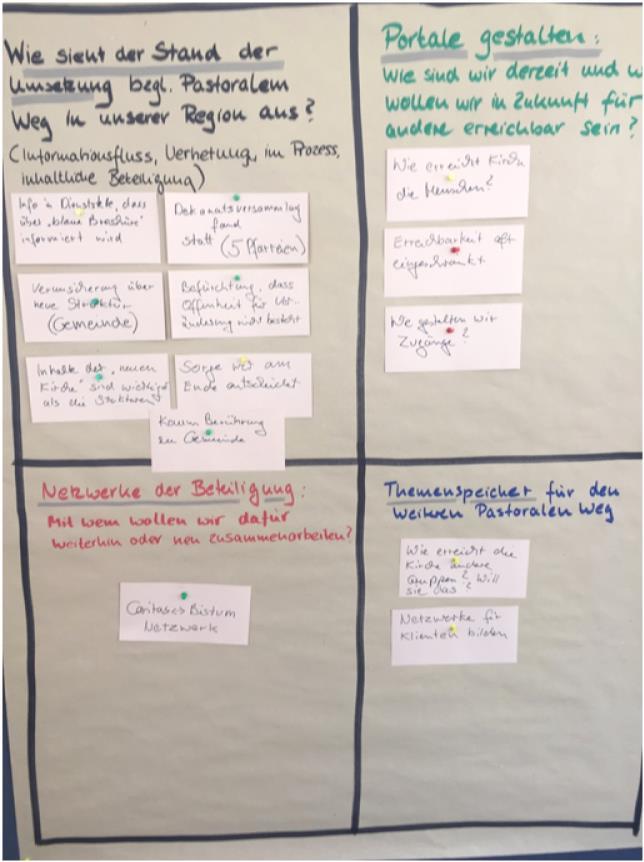 Wie sieht der Stand der
Umsetzung bzgl. Pastoralem
Weg in unserer Region aus?
(Informationsfluss, Vernetzung, im Prozess,
inhaltliche Beteiligung)
Info in Dienststelle, dass
über "blaue Broschüre"
informiert wird
Dekanatsversammlung
fand
statt (5 Pfarreien)
Verunsicherung über
neue Struktur
(Gemeinde)
Befürchtung, dass
Offenheit für Ver-
änderung nicht besteht
Inhalte der "neuen
Kirche" sind wichtiger
als die Strukturen
Sorge wer am
Ende entscheidet
Kaum Berührung
zu Gemeinde
Portale gestalten:
Wie sind wir derzeit und w
wollen wir in Zukunft für
andere erreichbar sein?
Wie erreicht Kirche
die Menschen?
Erreichbarkeit oft
eingeschränkt
Wie gestalten wir
Zugänge?
Netzwerke der Beteiligung:
Mit wem wollen wir dafür
weiterhin oder neu zusammenarbeiten?
Caritas Bistum
Netzwerk
Themenspeicher für den
weiteren Pastoralen Weg
Wie erreicht die
Kirche andere
Gruppen? Will
sie das?
Netzwerke für
Klienten bilden